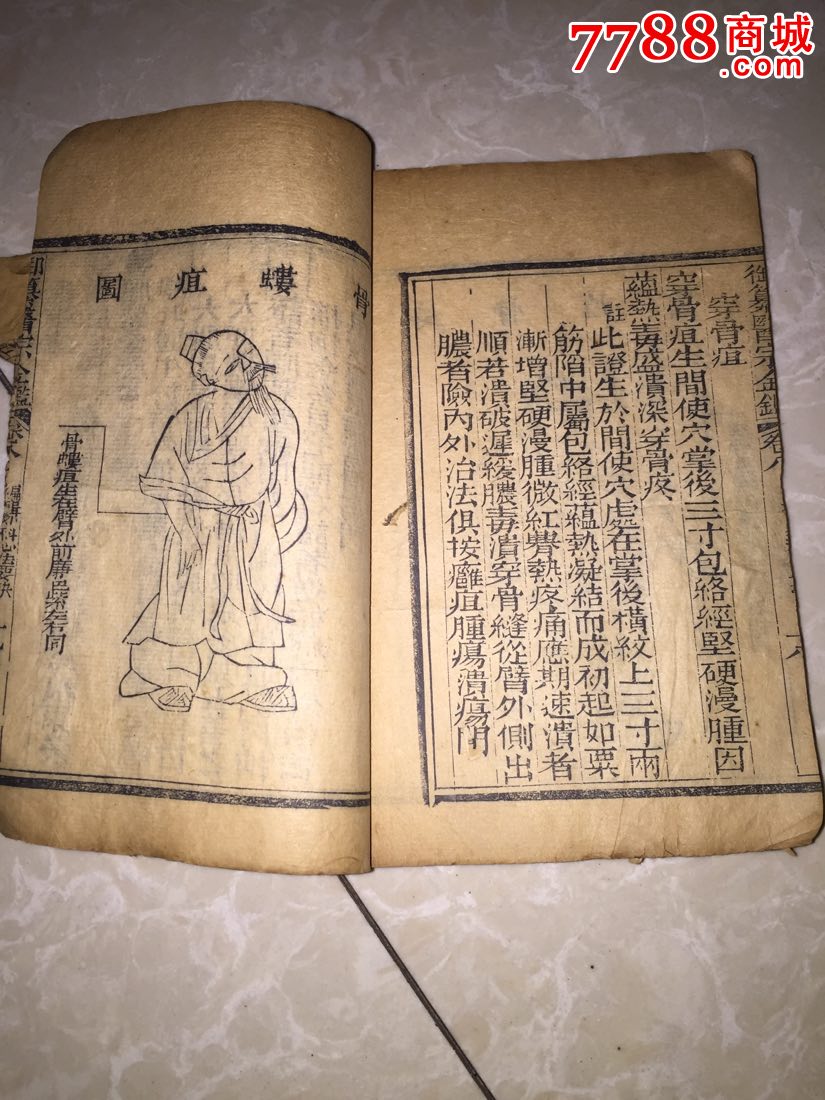 7788商城
.com
御纂醫宗金鑑 卷八
穿骨疽
穿骨疽生間使穴掌後三寸包絡經堅硬漫腫因
蘊熱毒盛潰深穿骨疼
註
此證生於間使穴處在掌後橫紋上三寸兩
筋陷中屬包絡經蘊熱凝結而成初起如粟
漸增堅硬漫腫微紅臖熱疼痛應期速潰者
順若潰破遲緩膿毒潰穿骨縫從臂外側出
膿者險內外治法俱按癰疽腫瘍潰瘍門
骨螻疽圖
骨螻疽生在臂外前廉